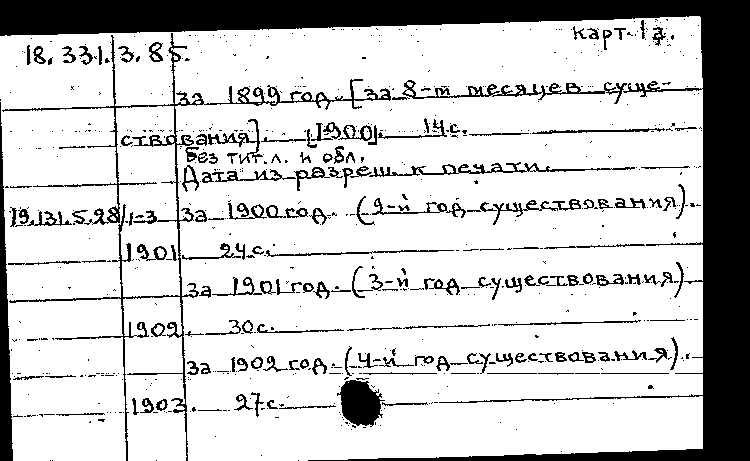 карт. 1а.
18.331.3.85.
за 1899 год. [за 8-м месяцев суще-
ствования]. [1900]. 14 с.
Без тит. л. и обл.
Дата из разреш. к печати.
19.131.5.28/1-3 за 1900 год. (2-й год существования).
1901. 24 с.
за 1901 год. (3-й год существования)
1902. 30 с.
за 1902 год. (4-й год существования).
1903. 27 с.